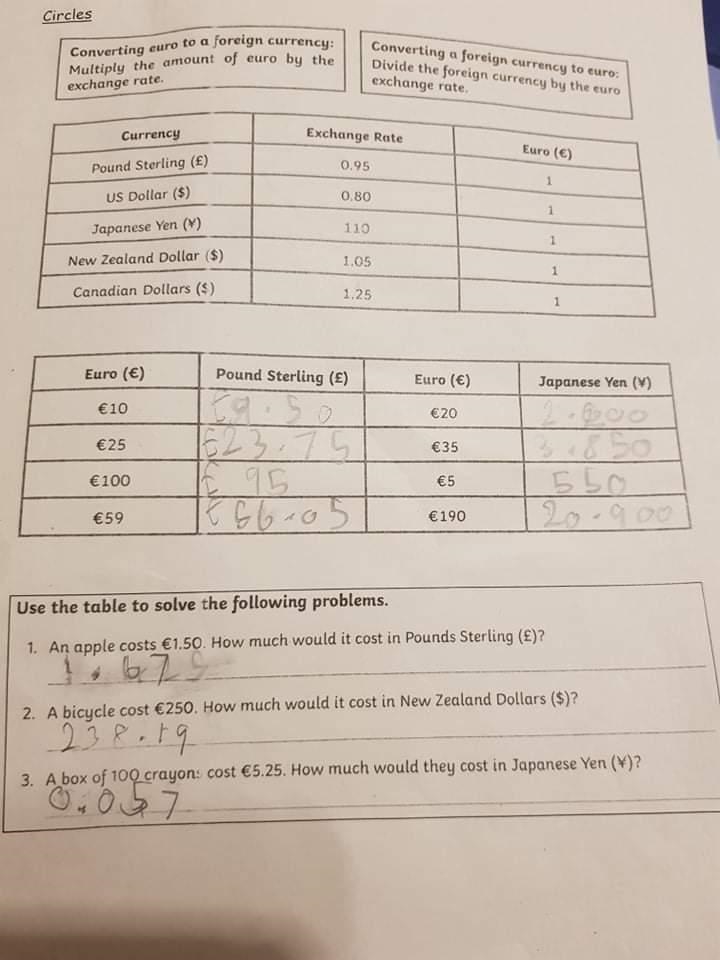 Circles
Converting euro to a foreign currency:
Multiply the amount of euro by the
exchange rate.
Converting a foreign currency to euro:
Divide the foreign currency by the euro
exchange rate.
Currency Exchange Rate Euro (€)
Pound Sterling (£) 0.95 1
US Dollar ($) 0.80 1
Japanese Yen (¥) 110 1
New Zealand Dollar ($) 1.05 1
Canadian Dollars ($) 1.25 1
Euro (€) Pound Sterling (£) Euro (€) Japanese Yen (¥)
€10 £9.50 €20
€25 £23.75 €35 3.850
€100 £95 €5 550
€59 €190 20.900
Use the table to solve the following problems.
1. An apple costs €1.50. How much would it cost in Pounds Sterling (£)?
2. A bicycle cost €250. How much would it cost in New Zealand Dollars ($)?
238.19
3. A box of 100 crayon: cost €5.25. How much would they cost in Japanese Yen (¥)?
0.057